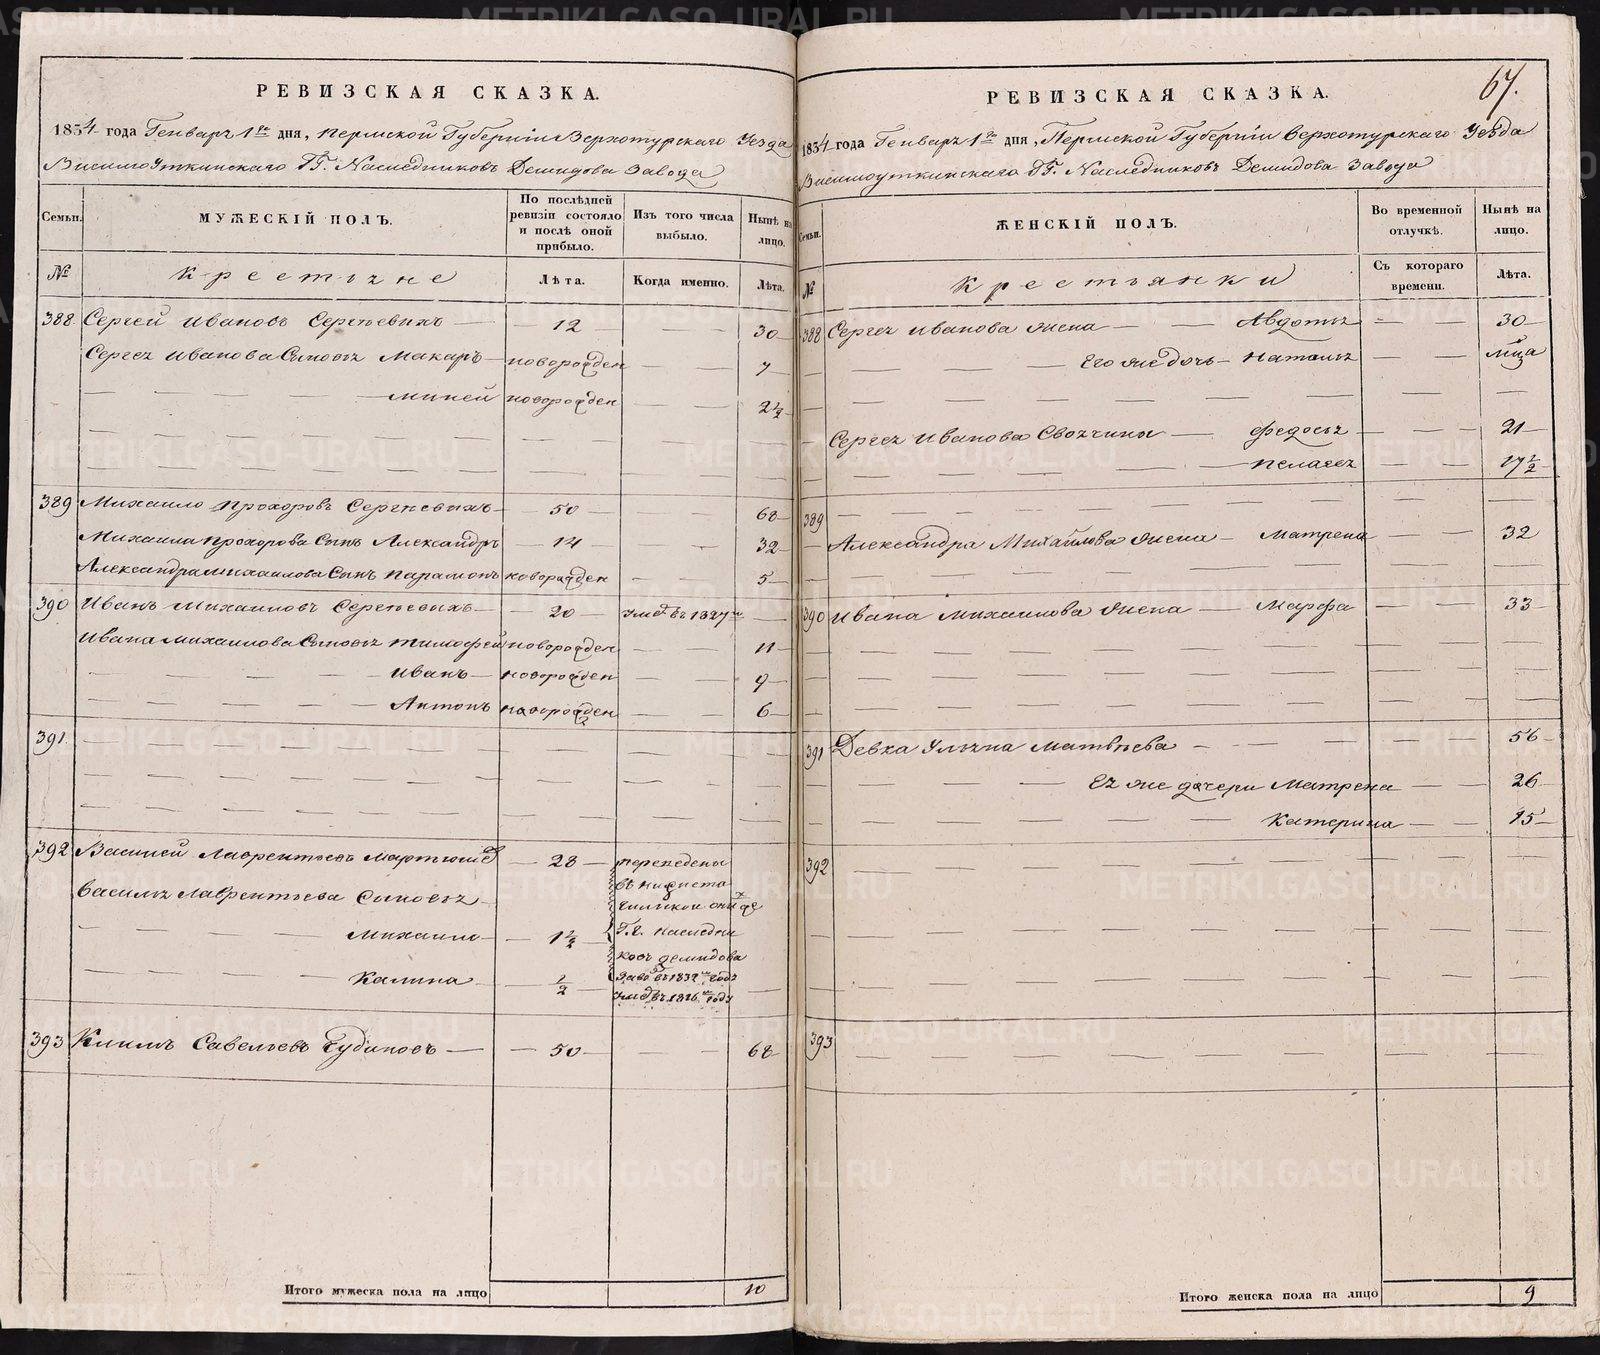 РЕВИЗСКАЯ СКАЗКА.
1834 года Генваря 1го дня, Пермской Губернии Верхотурского Уезда
Висимоуткинского ГГ. Наследниковъ Демидова завода
Семьи.
МУЖЕСКІЙ ПОЛЪ.
По послѣдней ревизіи состояло и послѣ оной прибыло.
Изъ того числа выбыло.
Нынѣ на лицо.
№
Крестьяне
Лѣта.
Когда именно.
Лѣта.
388 Сергей Ивановъ Сергѣевихъ 12 30
Сергея Иванова Сыновья Макаръ новорожден 7
Миней новорожден 2 1/2
389 Михаило Прохоровъ Сергѣевихъ 50 68
Михаила Прохорова Сынъ Александръ 14 32
Александра Михаилова Сынъ Парамонъ новорожден 5
390 Иванъ Михаиловъ Сергѣевихъ 20 умеръ въ 1827м
Ивана Михаилова Сыновья Тимофей новорожден 11
Иванъ новорожден 9
Антонъ новорожден 6
391
392 Василей Лаврентьевъ 28 переведены
Василья Лаврентьева Сыновья
въ
Михаило 1 1/2 Г.г. наследни
ковъ демидова
Калина 1/2 въ 1832м году
умеръ въ 1826м году
393 Климъ Савельевъ Гудиновъ 50 68
Итого мужеска пола на лицо 10
67.
РЕВИЗСКАЯ СКАЗКА.
1834 года Генваря 1го дня, Пермской Губернии Верхотурского Уезда
Висимоуткинского ГГ. Наследниковъ Демидова завода
Семьи.
ЖЕНСКІЙ ПОЛЪ.
Во временной отлучкѣ.
Нынѣ на лицо.
№
Крестьянки
Съ котораго времени.
Лѣта.
388 Сергея Иванова жена Авдотья 30
Его же дочь Наталья
Сергея Иванова Своячины Федосья 21
Пелагея 17 1/2
389
Александра Михаилова жена Матрена 32
390 Ивана Михаилова жена Марфа 33
391 Девка Ульяна Матвѣева 56
Ея же дочери Матрена 26
Катерина 15
392
393
Итого женска пола на лицо 9
METRIKI.GASO-URAL.RU